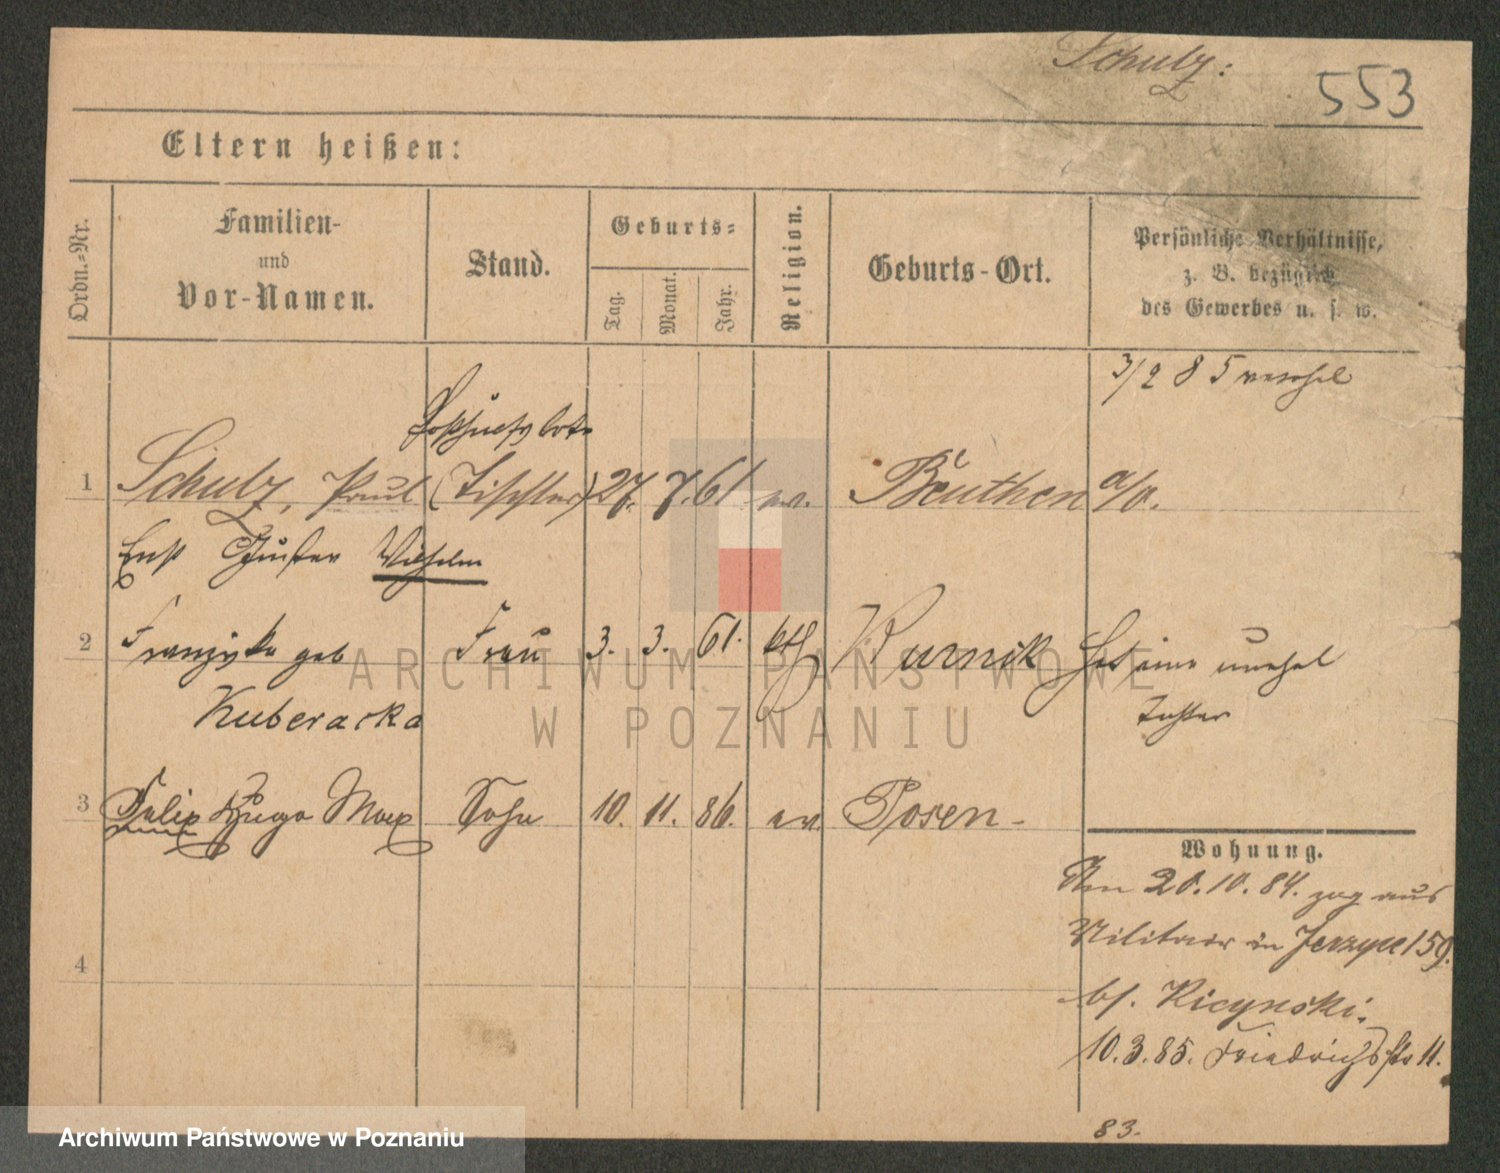 Schulz:
553
Eltern heißen:
Ordn.-Nr.
Familien-
und
Vor-Namen.
Stand.
Geburts-
Tag.
Monat.
Jahr.
Religion.
Geburts-Ort.
Persönliche Verhältnisse,
z. B. bezüglich
des Gewerbes u. s. w.
3/2 85
1 Schulz, Paul (Tischler) 27. 7. 61 ev. Beuthen a/O.
Ernst Gustav Wilhelm
2 Franziska geb Frau 3. 3. 61. kth Kurnik Hat eine unehel
Kuberacka Tochter
3 Felix Hugo Max Sohn 10. 11. 86. ev. Posen-
Wohnung.
Am 20.10.84. zog aus
Militair in Jerzyce 159.
bf. Ricynski.
10.3.85. Friedrichstr 11.
4
83.
ARCHIWUM PAŃSTWOWE
W POZNANIU
Archiwum Państwowe w Poznaniu